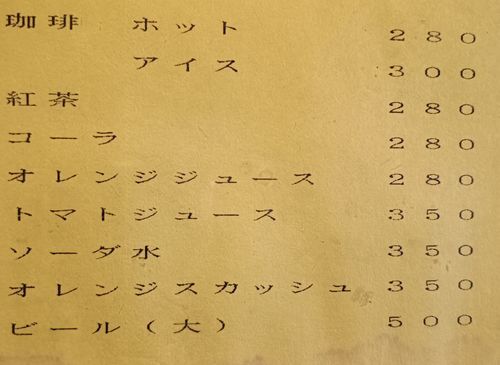 珈琲 ホット 280
アイス 300
紅茶 280
コーラ 280
オレンジジュース 280
トマトジュース 350
ソーダ水 350
オレンジスカッシュ 350
ビール(大) 500